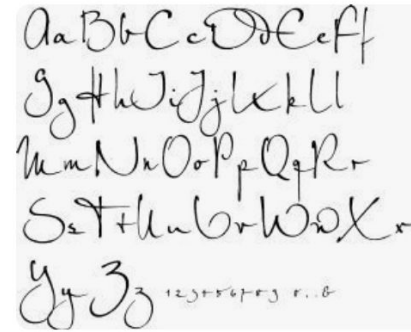 Aa Bb Cc Dd Ee Ff
Gg Hh Ii Jj Kk Ll
Mm Nn Oo Pp Qq Rr
Ss Tt Uu Vv Ww Xx
Yy Zz 1234567890